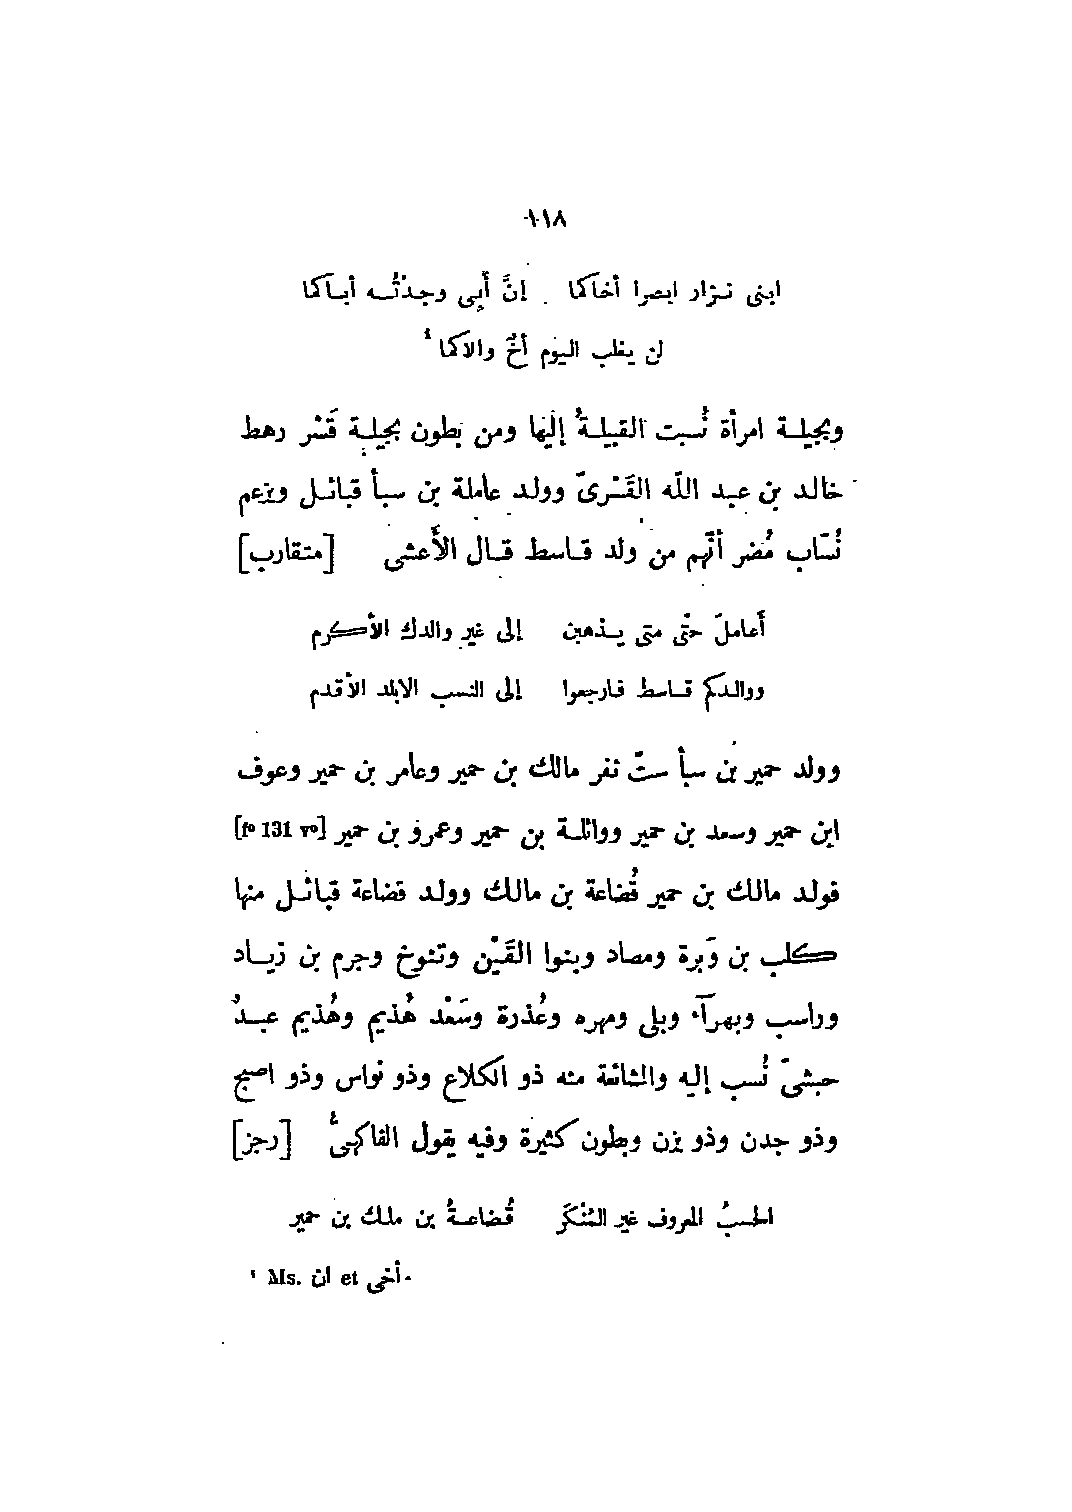 ١١٨
ابنى نزار ابصرا أخاكما إنَّ أَبِى وجدتُه أباكما
لن يغلب اليوم أخٌ والاكما ¹
وبجيلة امرأة نُسبت القبيلةُ إليها ومن بطون بجيلة قَسْر رهط
خالد بن عبد الله القَسْرىّ وولد عاملة بن سبأ قبائل ويزعم
نُسّاب مُضر أنّهم من ولد قاسط قال الأَعشى [متقارب]
أَعاملَ حتّى متى يذهبن إلى غير والدك الأكرم
ووالدكم قاسط فارجعوا إلى النسب الابلد الأقدم
وولد حمير بن سبأ ستّ نفر مالك بن حمير وعامر بن حمير وعوف
ابن حمير وسعد بن حمير ووائلة بن حمير وعمرو بن حمير [fº 131 vº]
فولد مالك بن حمير قُضاعة بن مالك وولد قضاعة قبائل منها
كلب بن وَبرة ومصاد وبنوا القَيْن وتنوخ وجرم بن زياد
وراسب وبهرآء وبلى ومهره وعُذرة وسَعْد هُذيم وهُذيم عبدُ
حبشىّ نُسب إليه والثائمة منه ذو الكلاع وذو نواس وذو اصبح
وذو جدن وذو يزن وبطون كثيرة وفيه يقول الفاكهىُّ [رجز]
الحسبُ المعروف غير المُنْكَرِ قُضاعةُ بن ملك بن حمير
¹ Ms. ان et أخى.